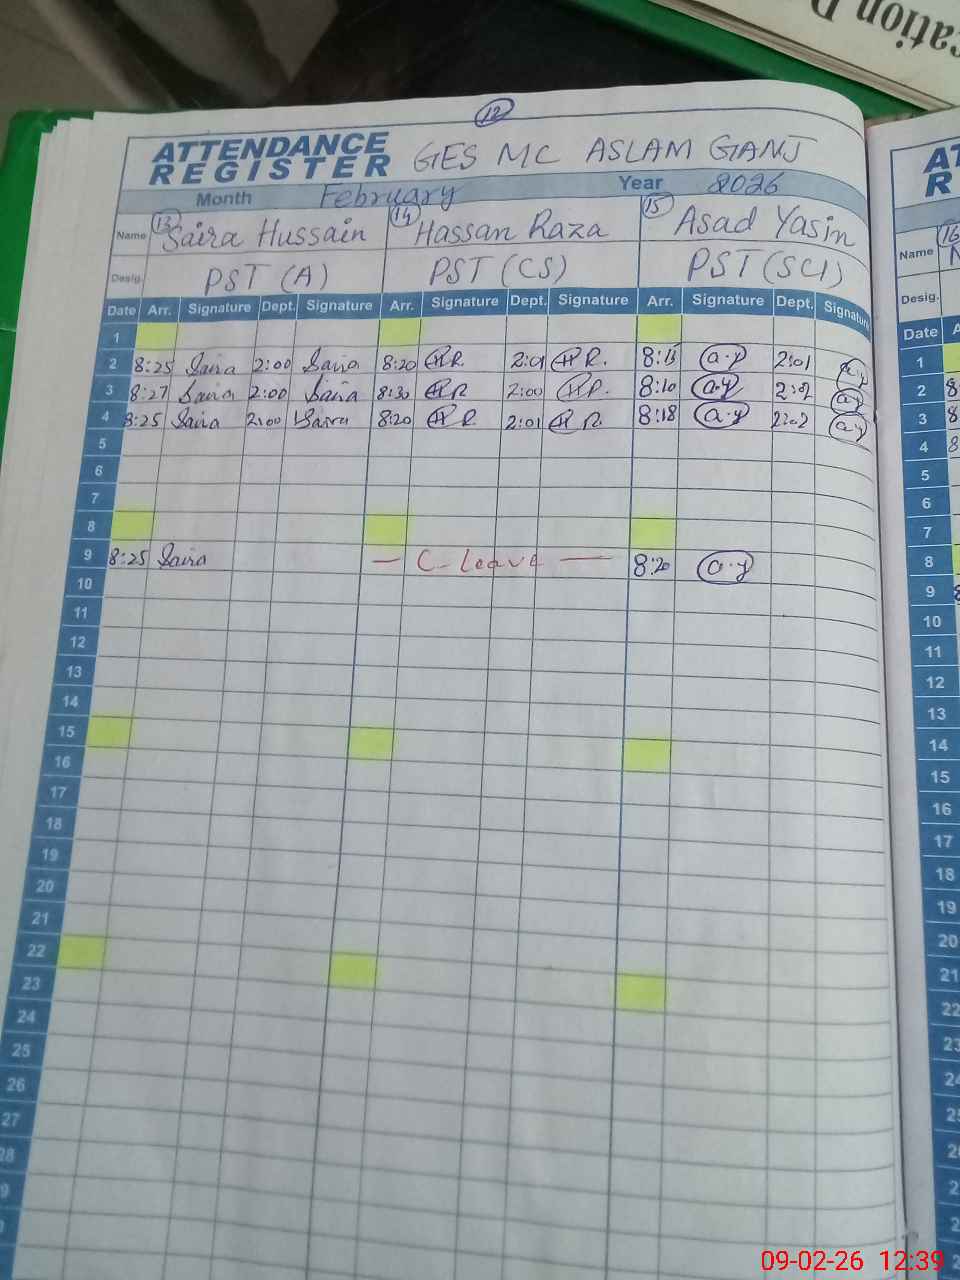 cation D
12
ATTENDANCE
REGISTER GES MC ASLAM GANJ
Month February Year 2026
Name 13 Saira Hussain 14 Hassan Raza 15 Asad Yasin
Desig. PST (A) PST (CS) PST (SCI)
Date Arr. Signature Dept. Signature Arr. Signature Dept. Signature Arr. Signature Dept. Signature
1
2 8:25 Saira 2:00 Saira 8:20 HR 2:01 HR. 8:15 a.y 2:01 a.y
3 8:27 Saira 2:00 Saira 8:30 HR 2:00 HR. 8:10 a.y 2:02 a.y
4 8:25 Saira 2:00 Saira 8:20 HR 2:01 HR. 8:18 a.y 2:02 a.y
5
6
7
8
9 8:25 Saira — C-leave — 8:20 a.y
10
11
12
13
14
15
16
17
18
19
20
21
22
23
24
25
26
27
28
9
AT
R
16
Name
Desig.
Date A
1
2 8
3 8
4 8
5
6
7
8
9
10
11
12
13
14
15
16
17
18
19
20
21
22
23
24
25
09-02-26 12:39